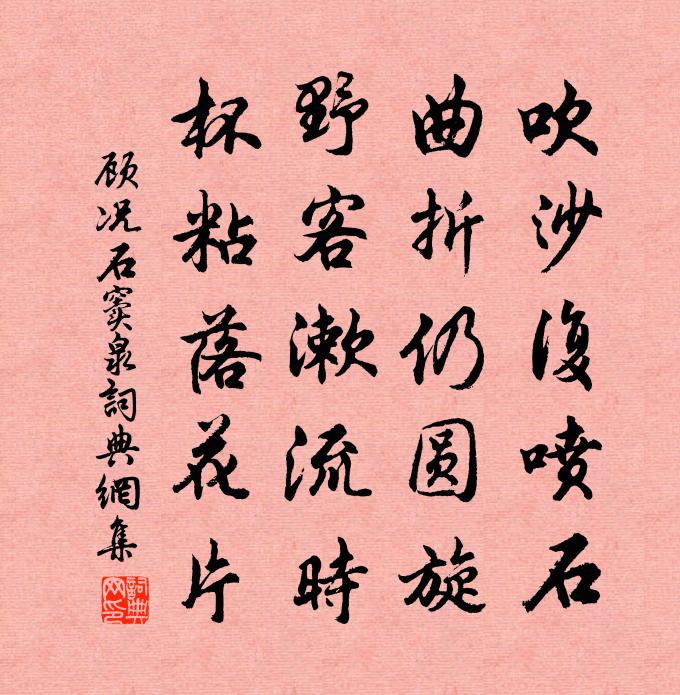 吹沙復喷石
曲折仍圆旋
野客漱流時
杯粘落花片
顾况石窦泉詞典網集
詞典
网印